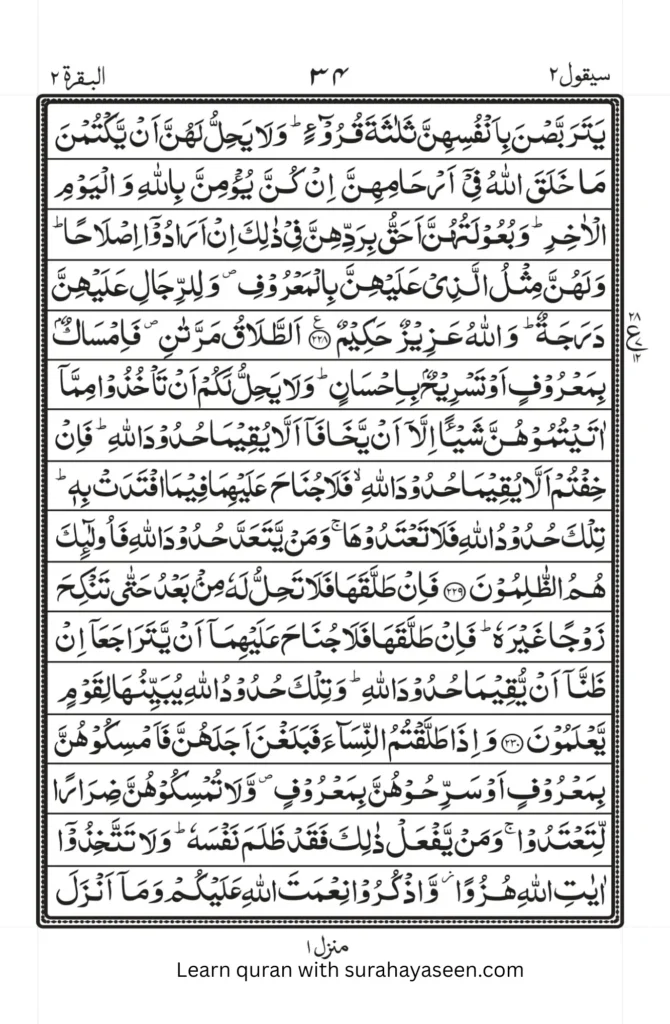 سيقول ٢ ٣٤ البقرة ٢
يَتَرَبَّصْنَ بِاَنْفُسِهِنَّ ثَلٰثَةَ قُرُوْٓءٍ ؕ وَلَا يَحِلُّ لَهُنَّ اَنْ يَّكْتُمْنَ
مَا خَلَقَ اللّٰهُ فِىْٓ اَرْحَامِهِنَّ اِنْ كُنَّ يُؤْمِنَّ بِاللّٰهِ وَالْيَوْمِ
الْاٰخِرِ ؕ وَبُعُوْلَتُهُنَّ اَحَقُّ بِرَدِّهِنَّ فِىْ ذٰلِكَ اِنْ اَرَادُوْٓا اِصْلَاحًا ؕ
وَلَهُنَّ مِثْلُ الَّذِىْ عَلَيْهِنَّ بِالْمَعْرُوْفِ ۪ وَلِلرِّجَالِ عَلَيْهِنَّ
دَرَجَةٌ ؕ وَاللّٰهُ عَزِيْزٌ حَكِيْمٌ ﴿۲۲۸﴾ اَلطَّلَاقُ مَرَّتٰنِ ۪ فَاِمْسَاكٌۢ
۲۸
ع
۷
۱۲
بِمَعْرُوْفٍ اَوْ تَسْرِيْحٌۢ بِاِحْسَانٍ ؕ وَلَا يَحِلُّ لَكُمْ اَنْ تَاْخُذُوْا مِمَّآ
اٰتَيْتُمُوْهُنَّ شَيْـًٔا اِلَّآ اَنْ يَّخَافَآ اَلَّا يُقِيْمَا حُدُوْدَ اللّٰهِ ؕ فَاِنْ
خِفْتُمْ اَلَّا يُقِيْمَا حُدُوْدَ اللّٰهِ ۙ فَلَا جُنَاحَ عَلَيْهِمَا فِيْمَا افْتَدَتْ بِهٖ ؕ
تِلْكَ حُدُوْدُ اللّٰهِ فَلَا تَعْتَدُوْهَا ۚ وَمَنْ يَّتَعَدَّ حُدُوْدَ اللّٰهِ فَاُولٰٓئِكَ
هُمُ الظّٰلِمُوْنَ ﴿۲۲۹﴾ فَاِنْ طَلَّقَهَا فَلَا تَحِلُّ لَهٗ مِنْۢ بَعْدُ حَتّٰى تَنْكِحَ
زَوْجًا غَيْرَهٗ ؕ فَاِنْ طَلَّقَهَا فَلَا جُنَاحَ عَلَيْهِمَآ اَنْ يَّتَرَاجَعَآ اِنْ
ظَنَّآ اَنْ يُّقِيْمَا حُدُوْدَ اللّٰهِ ؕ وَتِلْكَ حُدُوْدُ اللّٰهِ يُبَيِّنُهَا لِقَوْمٍ
يَّعْلَمُوْنَ ﴿۲۳۰﴾ وَاِذَا طَلَّقْتُمُ النِّسَآءَ فَبَلَغْنَ اَجَلَهُنَّ فَاَمْسِكُوْهُنَّ
بِمَعْرُوْفٍ اَوْ سَرِّحُوْهُنَّ بِمَعْرُوْفٍ ۪ وَّلَا تُمْسِكُوْهُنَّ ضِرَارًا
لِّتَعْتَدُوْا ۚ وَمَنْ يَّفْعَلْ ذٰلِكَ فَقَدْ ظَلَمَ نَفْسَهٗ ؕ وَلَا تَتَّخِذُوْٓا
اٰيٰتِ اللّٰهِ هُزُوًا ؗ وَّاذْكُرُوْا نِعْمَتَ اللّٰهِ عَلَيْكُمْ وَمَآ اَنْزَلَ
منزل ١
Learn quran with surahayaseen.com